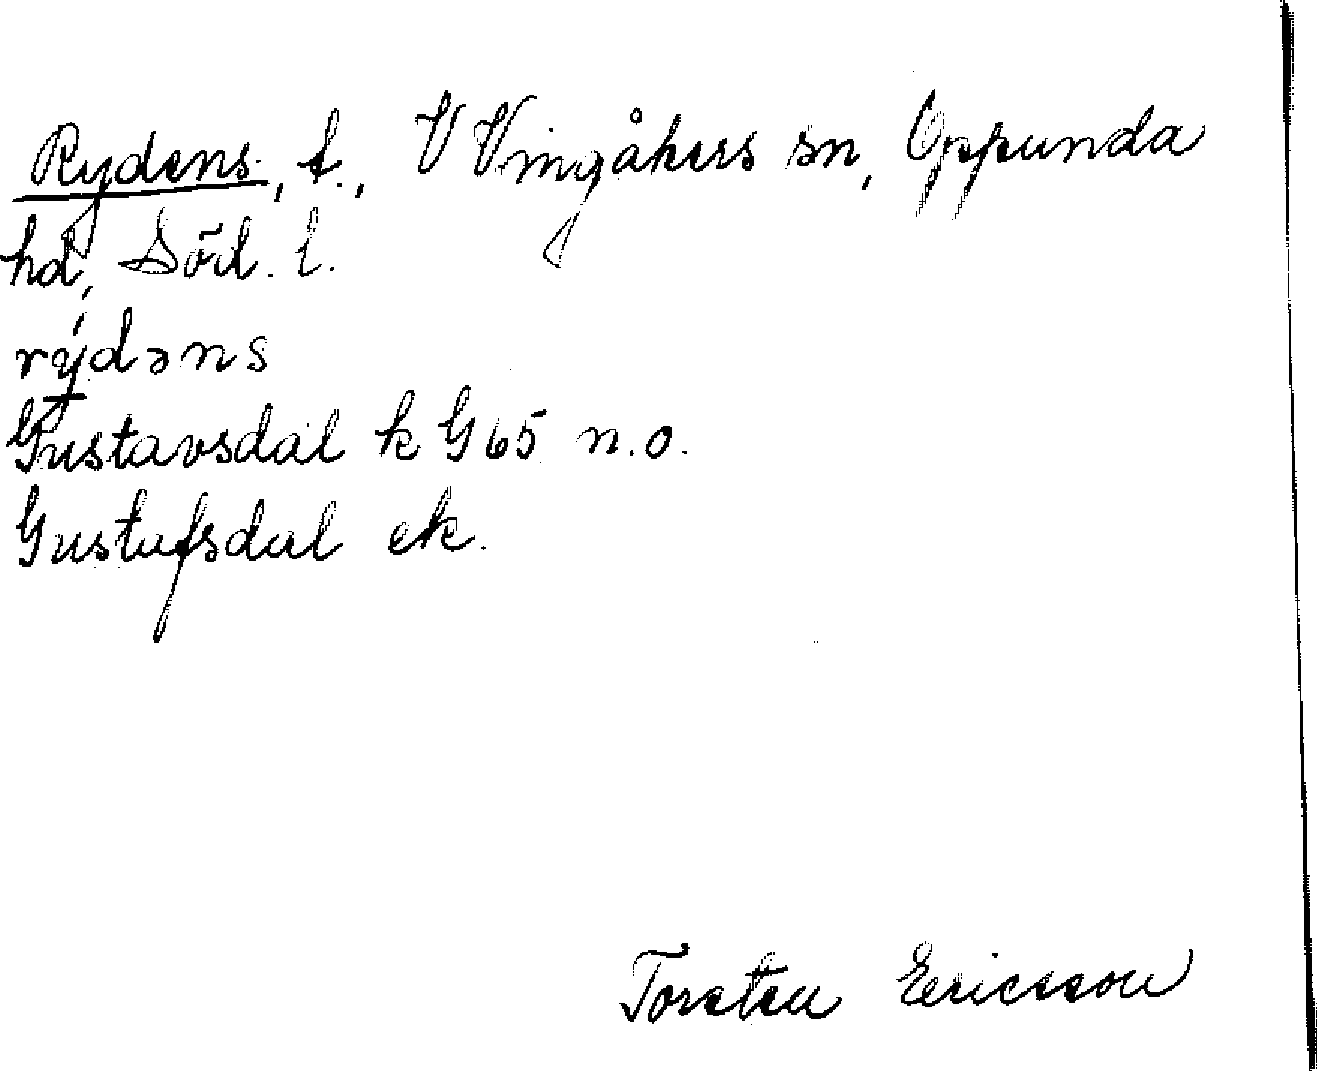 Rydens, t., V Vingåkers sn, Oppunda
hd, Söd. l.
rýdəns
Gustavsdal k G65 n.o.
Gustafsdal ek.
Torsten Ericsson